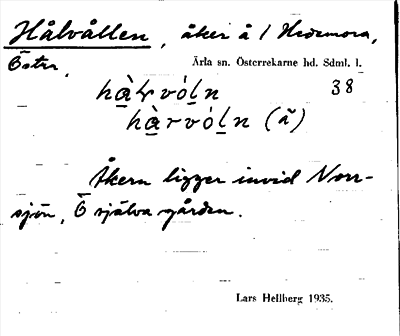 Hålvållen, åker å 1 Hedemora,
Öster. Ärla sn. Österrekarne hd. Sdml. l.
38
(ã)
Åkern ligger invid Norr-
sjön, Ö själva gården.
Lars Hellberg 1935.